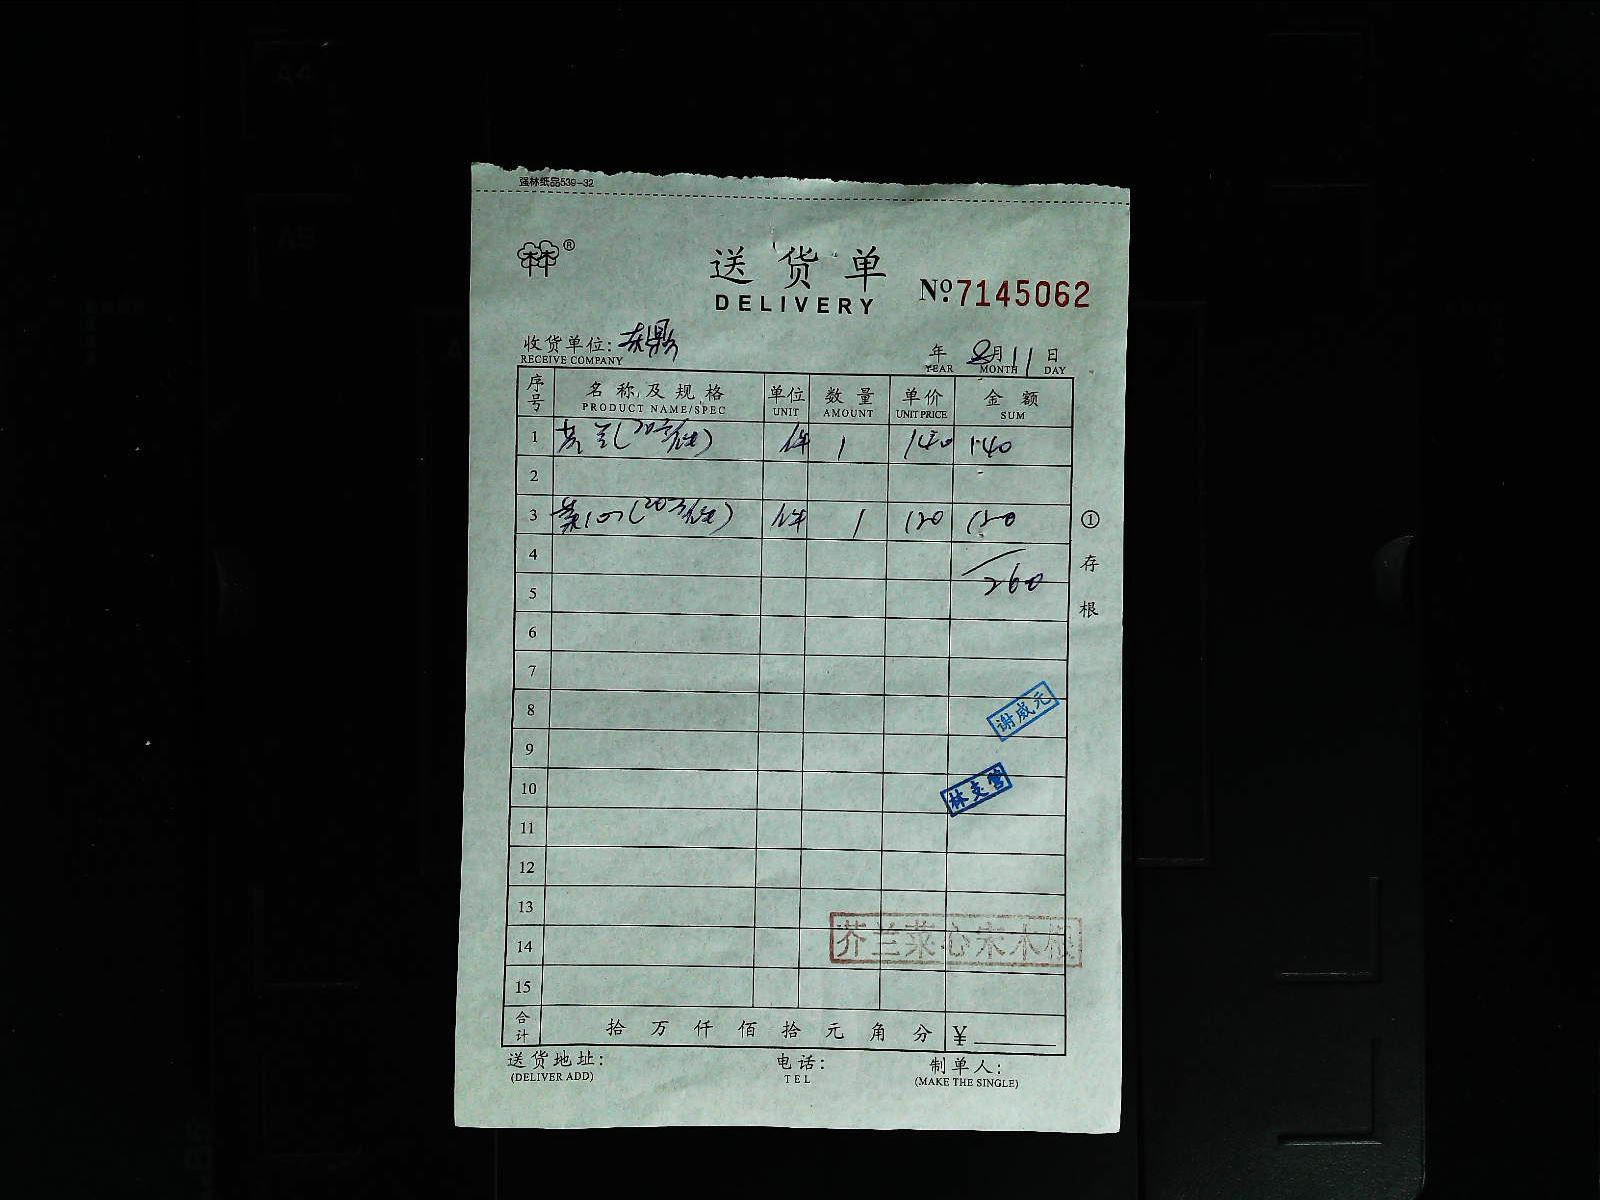 强林纸品539-32
林®
送货单
DELIVERY
Nº 7145062
收货单位: 东鼎
RECEIVE COMPANY
年 8月11日
YEAR MONTH DAY
序号 名称及规格 单位 数量 单价 金额
PRODUCT NAME/SPEC UNIT AMOUNT UNIT PRICE SUM
1 芥兰(20斤/件) 件 1 140 140
2
3 菜心(20斤/件) 件 1 120 120
4
260
5
6
7
8
谢威元
9
10
林支管
11
12
13
芥兰菜心宋木根
14
15
合计 拾万仟佰拾元角分 ¥
送货地址: 电话: 制单人:
(DELIVER ADD) TEL (MAKE THE SINGLE)
①存根